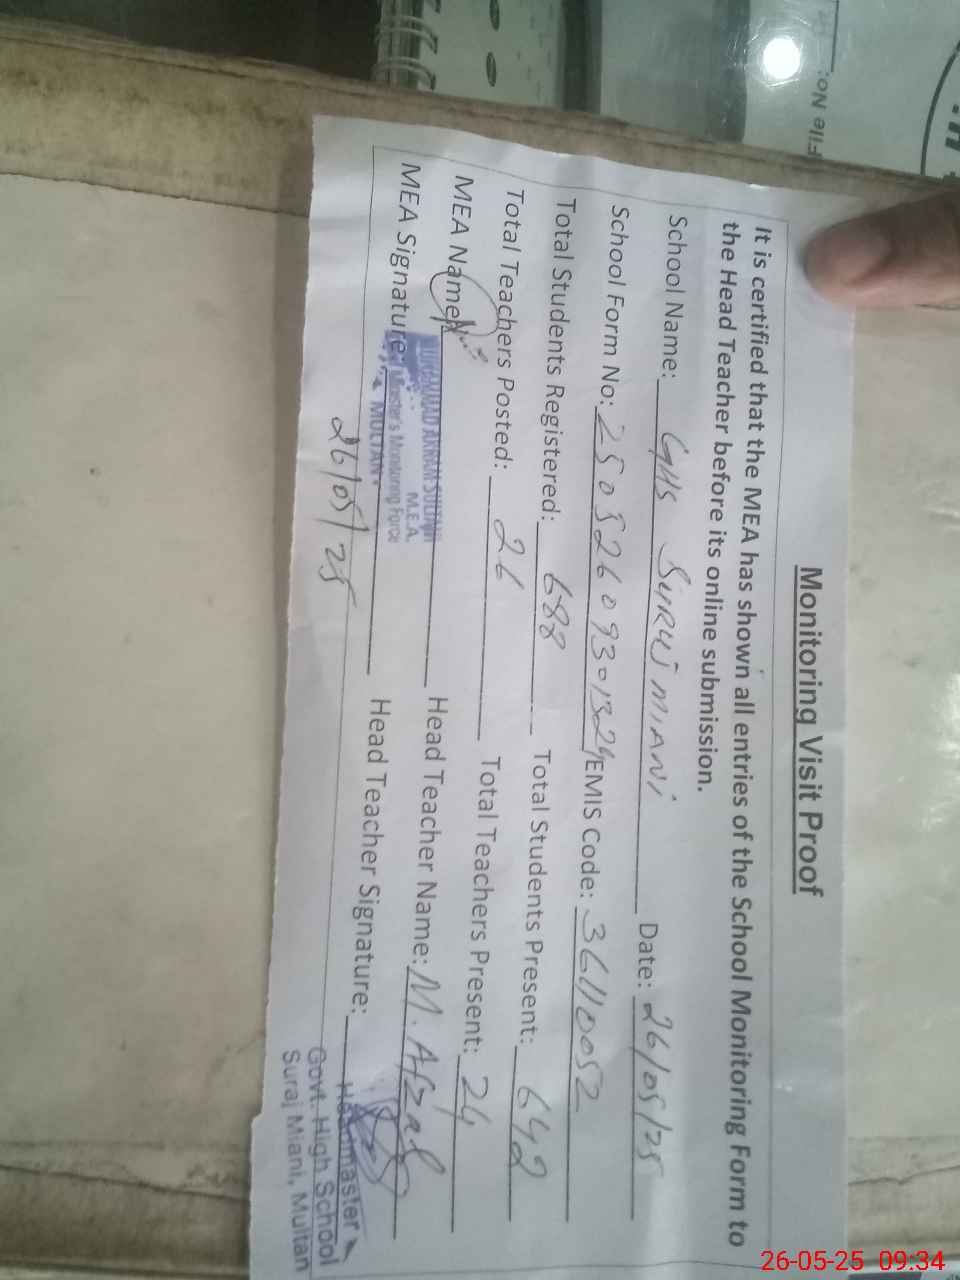 File No:
Monitoring Visit Proof
It is certified that the MEA has shown all entries of the School Monitoring Form to
the Head Teacher before its online submission.
School Name: GHS SURUJ MIANI Date: 26/05/25
School Form No: 25052609301324 EMIS Code: 36110052
Total Students Registered: 688 Total Students Present: 642
Total Teachers Posted: 26 Total Teachers Present: 24
MEA Name: MUHAMMAD AKRAM SULTAN Head Teacher Name: M. Afzal
M.E.A.
MEA Signature: Chief Minister's Monitoring Force Head Teacher Signature:
MULTAN
26/05/25
Headmaster
Govt. High School
Suraj Miani, Multan
26-05-25 09:34